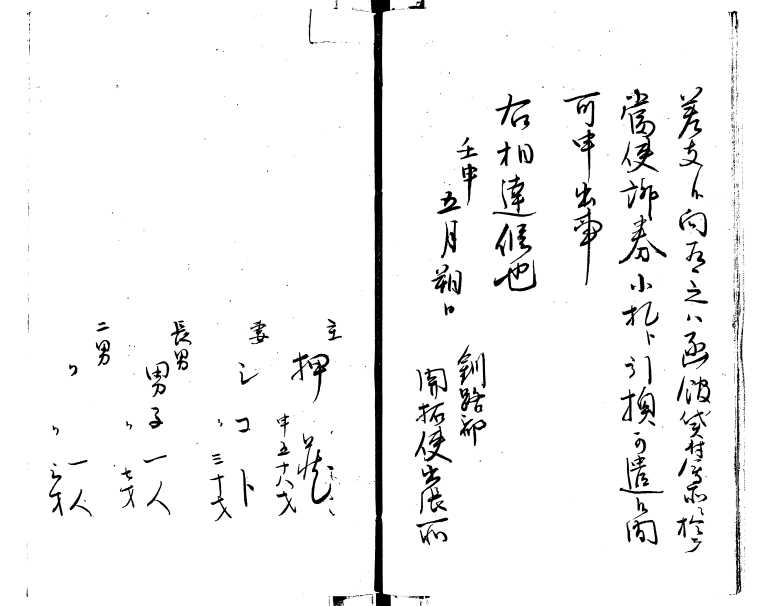 差支候向有之ハ函館貸付会所於テ
當使訴券小札ト引換可遣候間
可申出事
右相達候也
壬申
五月朔日
釧路郡
開拓使出張所
主
押蔵
申五十八才
妻
シコト
〃三十才
長男
男子一人
〃七才
二男
〃一人
〃三才